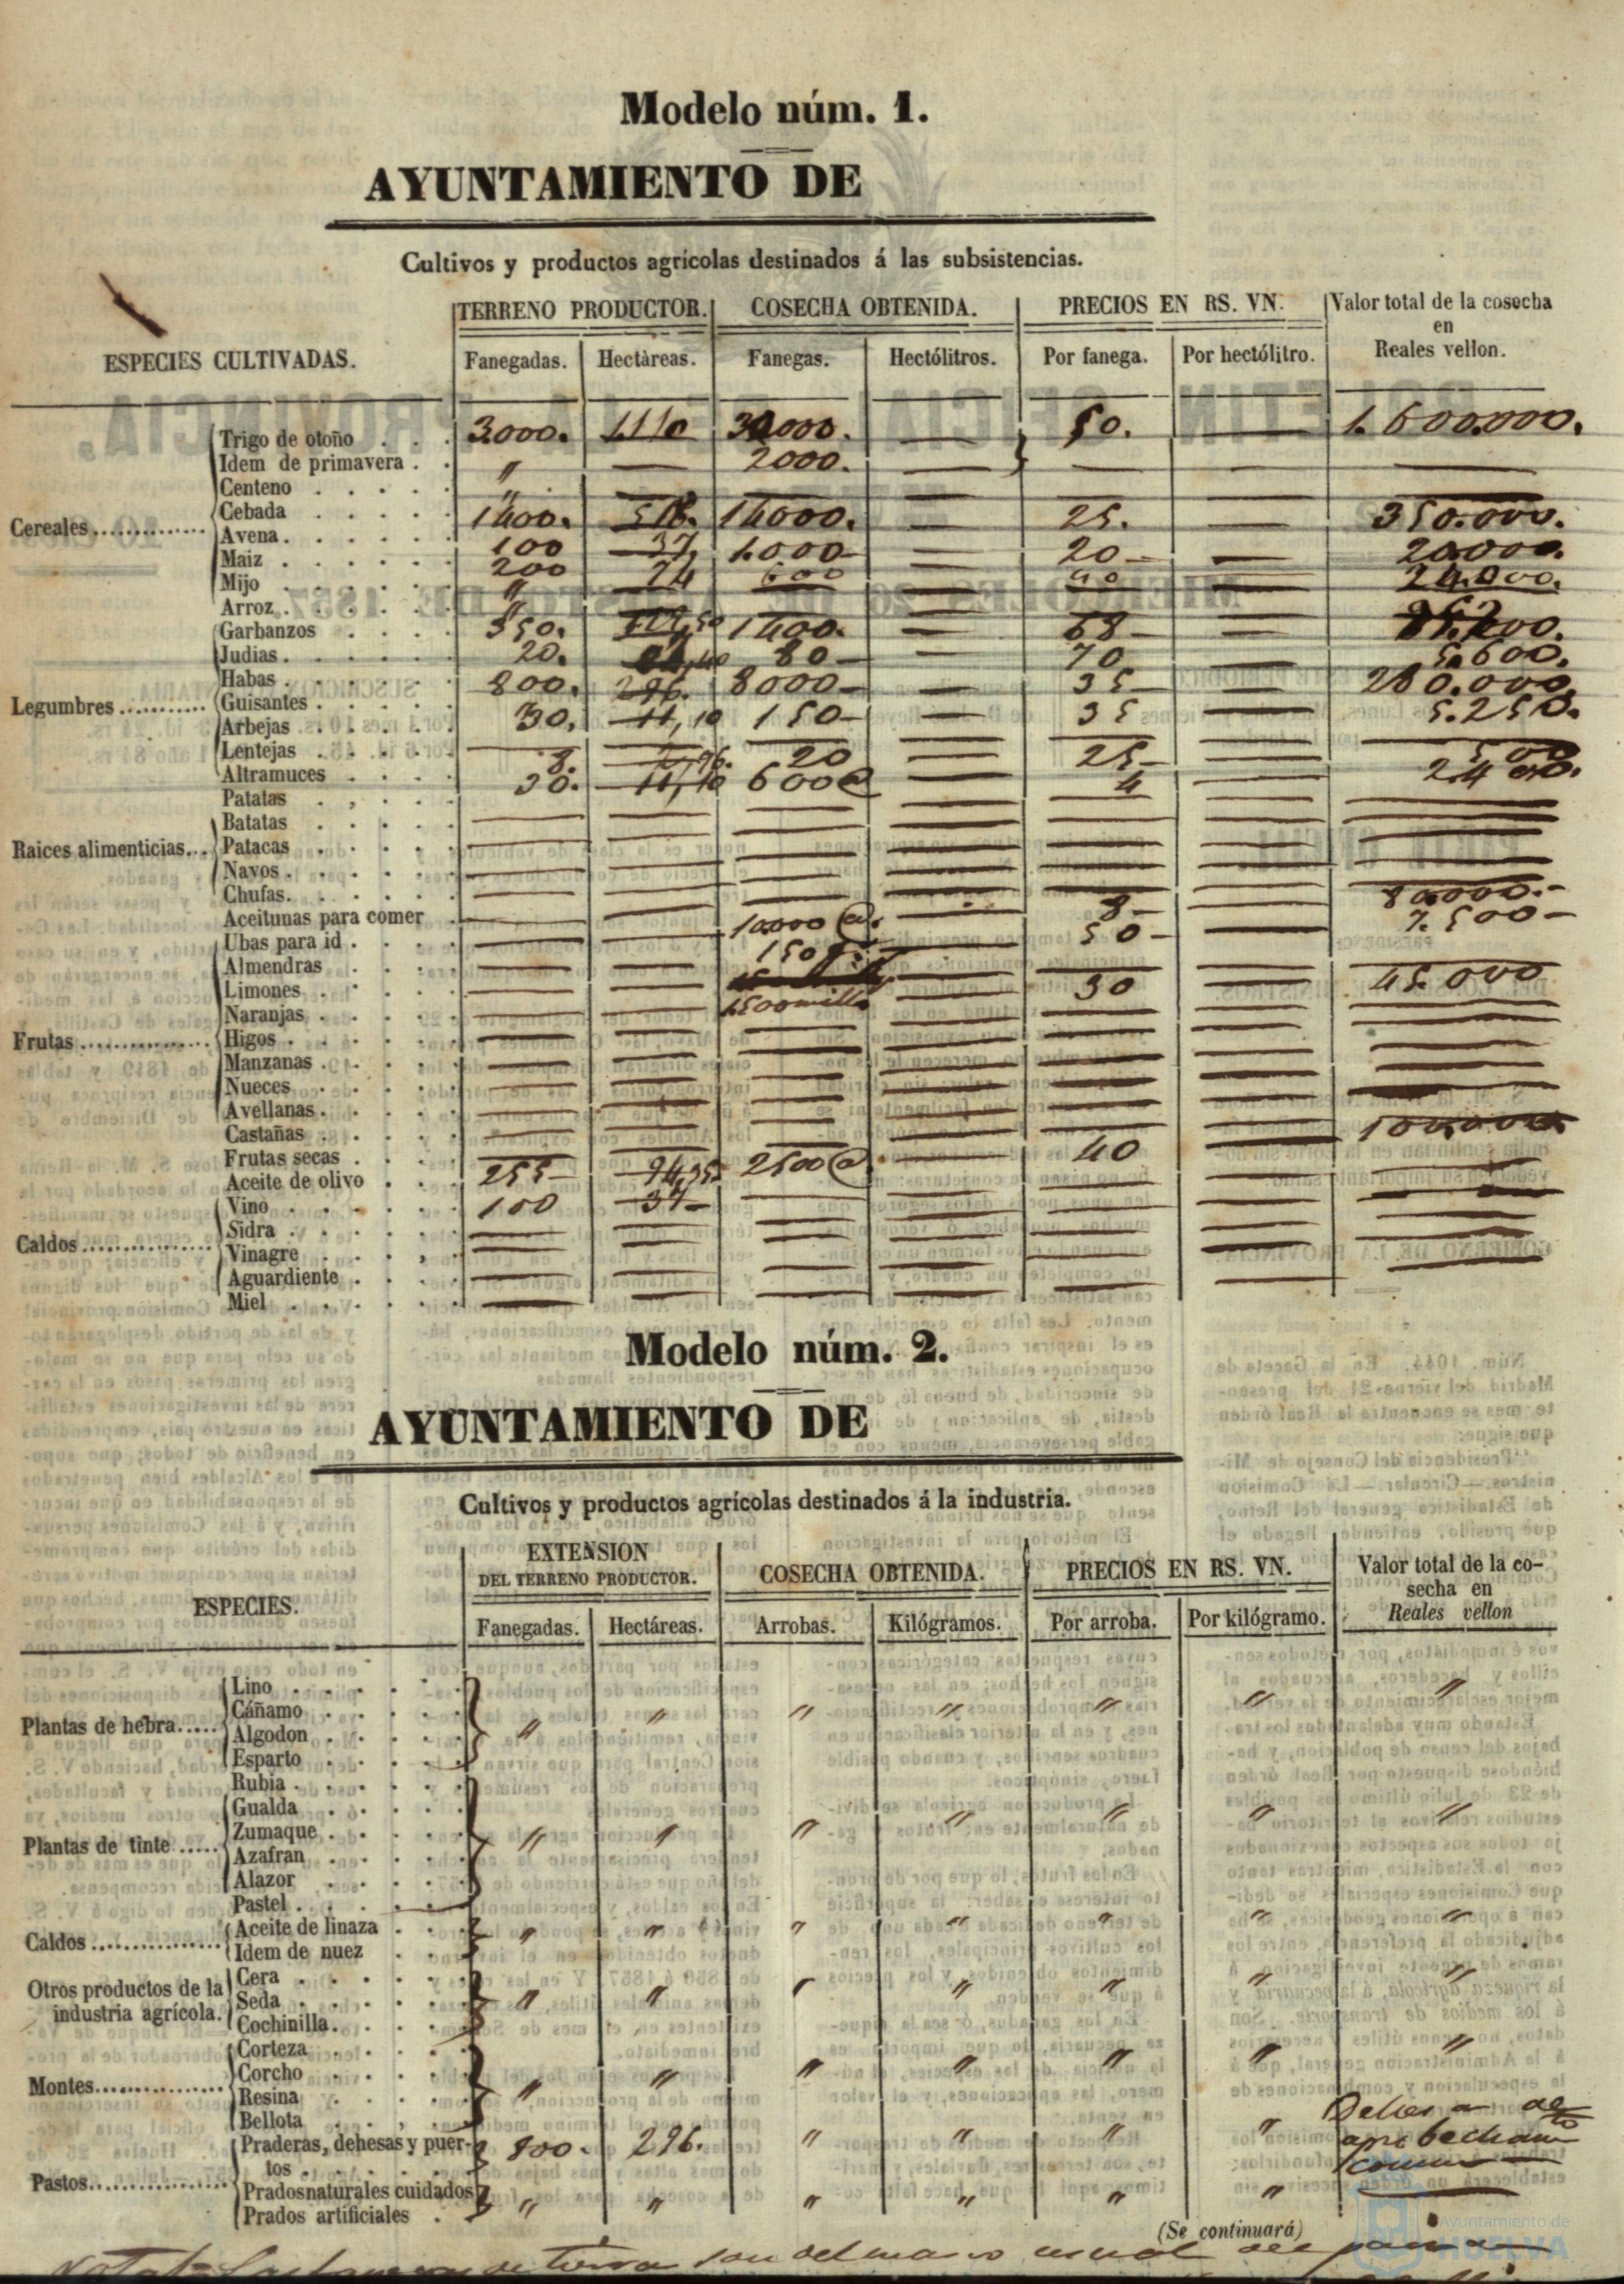 Modelo núm. 1.
AYUNTAMIENTO DE
Cultivos y productos agrícolas destinados á las subsistencias.
ESPECIES CULTIVADAS. TERRENO PRODUCTOR. COSECHA OBTENIDA. PRECIOS EN RS. VN. Valor total de la cosecha en Reales vellon.
Fanegadas. Hectàreas. Fanegas. Hectólitros. Por fanega. Por hectólitro.
Cereales
Trigo de otoño 3000. 1.110 30000. — 50. — 1.600.000.
Idem de primavera " — 2000. — — — —
Centeno "
Cebada 1400. 518. 14000. — 25. — 350.000.
Avena 100 37, 1.000 — 20 — 20.000.
Maiz 200 74 600 — 40 — 24.000.
Mijo "
Arroz "
Garbanzos 350. 1400. — 68 — 95.200.
Legumbres
Judias 20. 80 — 70 — 5.600.
Habas 800. 296. 8000 — 35 — 280.000,
Guisantes 30. 11,10 150 — 35 — 5.250.
Arbejas
Lentejas 8. 2,96. 20 — 25 — 500
Altramuces 30. 11,10 600 @ — 4 — 2.400.
Patatas
Raices alimenticias
Batatas
Patacas
Navos
Chufas
Aceitunas para comer 10.000 @. — 8 — 80.000.
Frutas
Ubas para id 150 — 50 — 7.500
Almendras
Limones
Naranjas 1500 mill — 30 — 45.000
Higos
Manzanas
Nueces
Avellanas
Castañas
Frutas secas
Caldos
Aceite de olivo 255 94,35 2500 @. — 40 — 100,000.
Vino 100 37
Sidra
Vinagre
Aguardiente
Miel
Modelo núm. 2.
AYUNTAMIENTO DE
Cultivos y productos agrícolas destinados á la industria.
ESPECIES. EXTENSION DEL TERRENO PRODUCTOR. COSECHA OBTENIDA. PRECIOS EN RS. VN. Valor total de la cosecha en Reales vellon
Fanegadas. Hectáreas. Arrobas. Kilógramos. Por arroba. Por kilógramo.
Plantas de hebra
Lino
Cáñamo " " " " " " "
Algodon
Esparto
Plantas de tinte
Rubia
Gualda
Zumaque " " " " " " "
Azafran
Alazor
Pastel
Caldos
Aceite de linaza " " " " " " "
Idem de nuez
Otros productos de la industria agrícola.
Cera
Seda " " " " " " "
Cochinilla
Montes
Corteza
Corcho " " " " " " "
Resina
Bellota
Pastos
Praderas, dehesas y puertos 800. 296. " " " " Dehesa de aprobechamto comun
Prados naturales cuidados " " " " " "
Prados artificiales
(Se continuará)
Ayuntamiento de
HUELVA